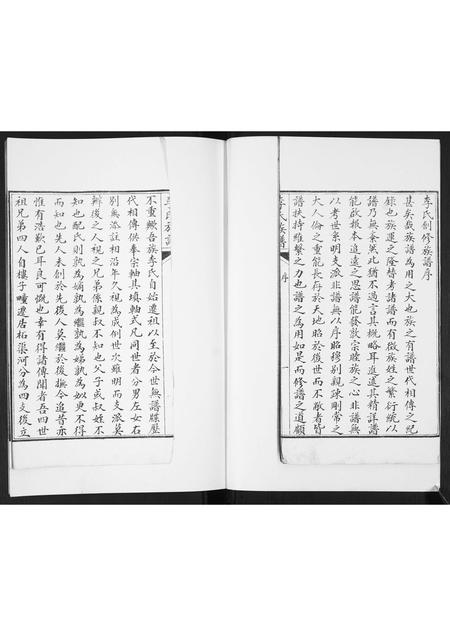 李氏創修族譜序
甚矣哉族譜為用之大也族之有譜世代相傳之紀
錄也族運之隆替考諸譜而有徵族姓之繁衍統以
譜乃無紊然此猶不過言其概略耳進道其精詳譜
能啟報本追遠之思譜能發敦宗睦族之心非譜無
以考世系明支派非譜無以序昭穆別親疎剛常之
大人倫之重能長存於天地昭於後世而不敝者皆
譜扶持維繫之力也譜之為用如是而修譜之道顧
李氏族譜 序
李氏族譜
不重歟吾族李氏自始遷祖以至於今世無譜牒歷
代相傳供奉宗軸其填軸式凡同世者分男左女右
別無添註相沿年久視為成例世次雖明而支派莫
辨後之人視之兄弟係親叔不知也父子或叔姪不
知也配氏則孰為嫡孰為繼孰為娣孰為姒更不得
而知也先人未創於先後人莫繼於後撫今追昔亦
惟有浩歎已耳良可慨也幸有得諸傳聞者吾四世
祖兄弟四人自樓子疃遷居柘渠河分為四支後立